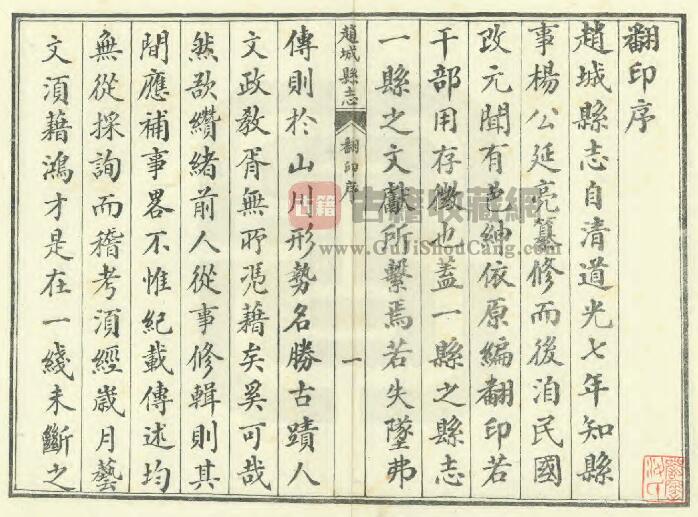 翻印序
趙城縣志自清道光七年知縣
事楊公延亮纂修而後洎民國
改元聞有邑紳依原編翻印若
干部用存徵也蓋一縣之縣志
一縣之文獻所繫焉若失墜弗
趙城縣志
翻印序
一
傳則於山川形勢名勝古蹟人
文政敎胥無所憑藉矣奚可哉
然欲纘緒前人從事修輯則其
間應補事畧不惟紀載傳述均
無從採詢而稽考須經歲月藝
文須藉鴻才是在一綫未斷之
古籍
古籍收藏網
www.GuJiShouCang.com